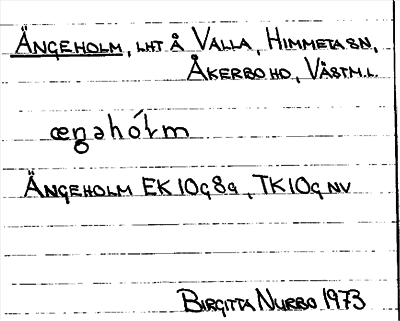 ÄNGEHOLM, LHT Å VALLA, HIMMETA SN,
ÅKERBO HD, VÄSTM.L.
æŋəhól̩m
ÄNGEHOLM EK 10g 8g, TK 10g NV
BIRGITTA NURBO 1973